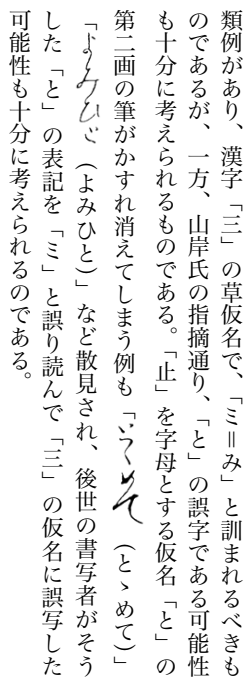 類例があり、漢字「三」の草仮名で、「ミ＝み」と訓まれるべきも
のであるが、一方、山岸氏の指摘通り、「と」の誤字である可能性
も十分に考えられるものである。「止」を字母とする仮名「と」の
第二画の筆がかすれ消えてしまう例も「とゝめて（とゝめて）」
「よみひと（よみひと）」など散見され、後世の書写者がそう
した「と」の表記を「ミ」と誤り読んで「三」の仮名に誤写した
可能性も十分に考えられるのである。